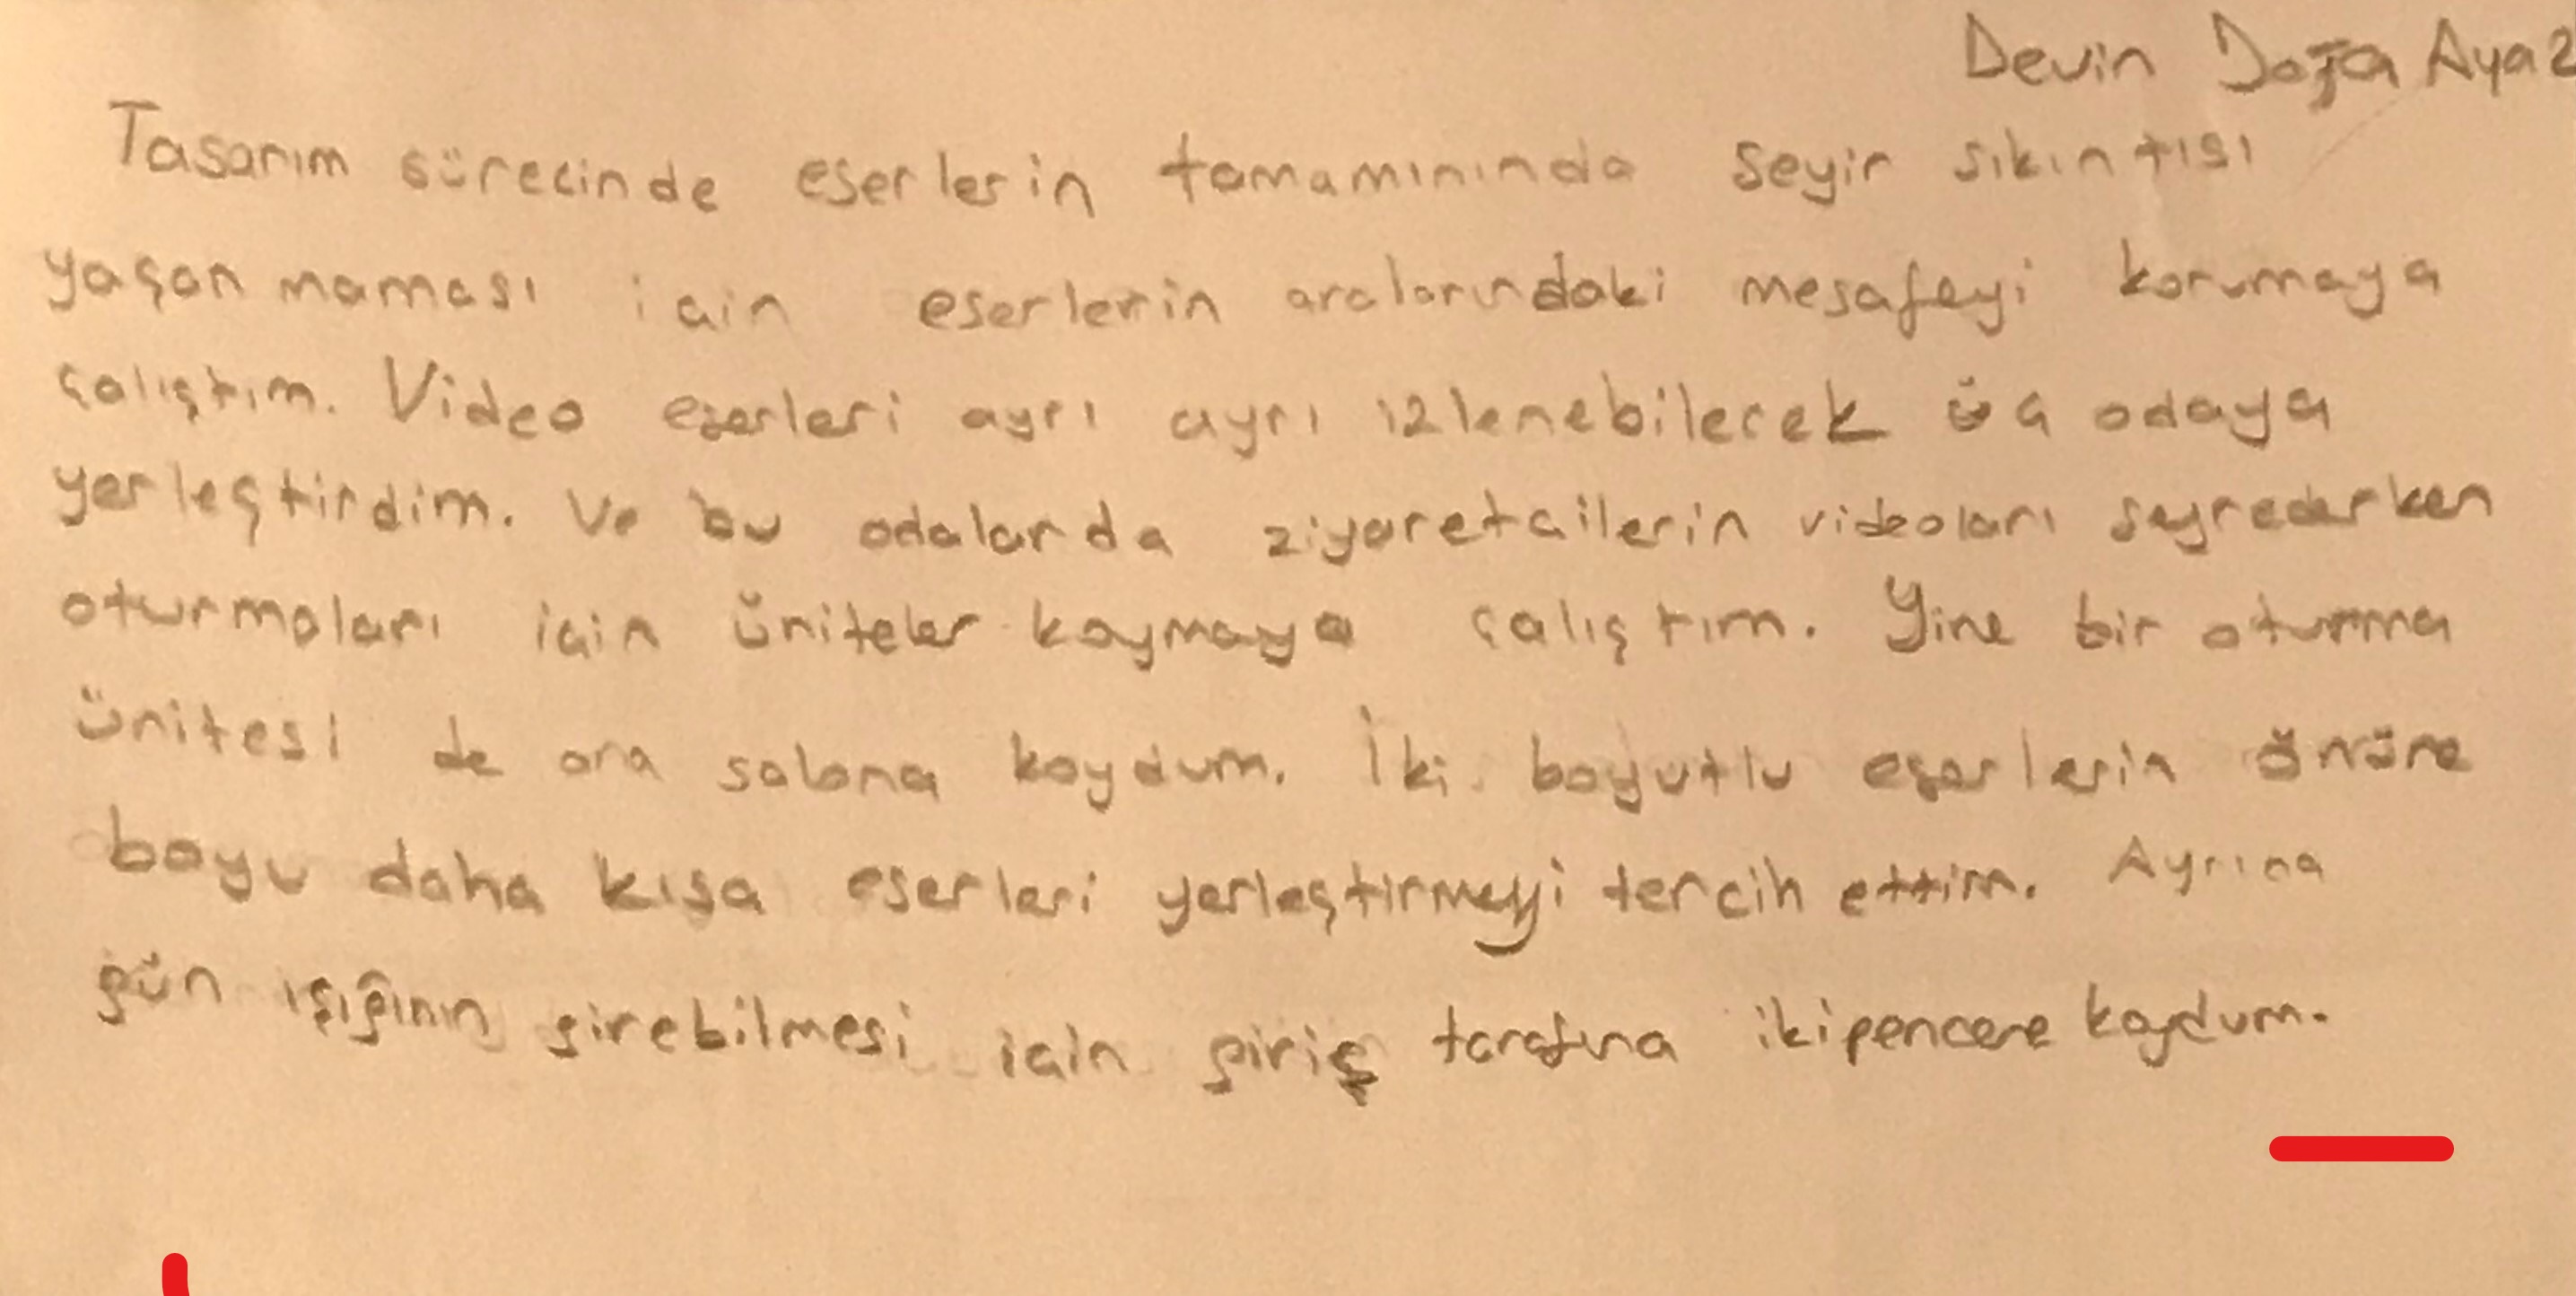 Devin Doğa Ayaz
Tasarım sürecinde eserlerin tamamınında seyir sıkıntısı
yaşanmaması için eserlerin aralarındaki mesafeyi korumaya
çalıştım. Video eserleri ayrı ayrı izlenebilecek üç odaya
yerleştirdim. Ve bu odalarda ziyaretçilerin videoları seyrederken
oturmaları için üniteler koymaya çalıştım. Yine bir oturma
ünitesi de ara salona koydum. İki boyutlu eserlerin önüne
boyu daha kısa eserleri yerleştirmeyi tercih ettim. Ayrıca
gün ışığının girebilmesi için giriş tarafına iki pencere koydum.